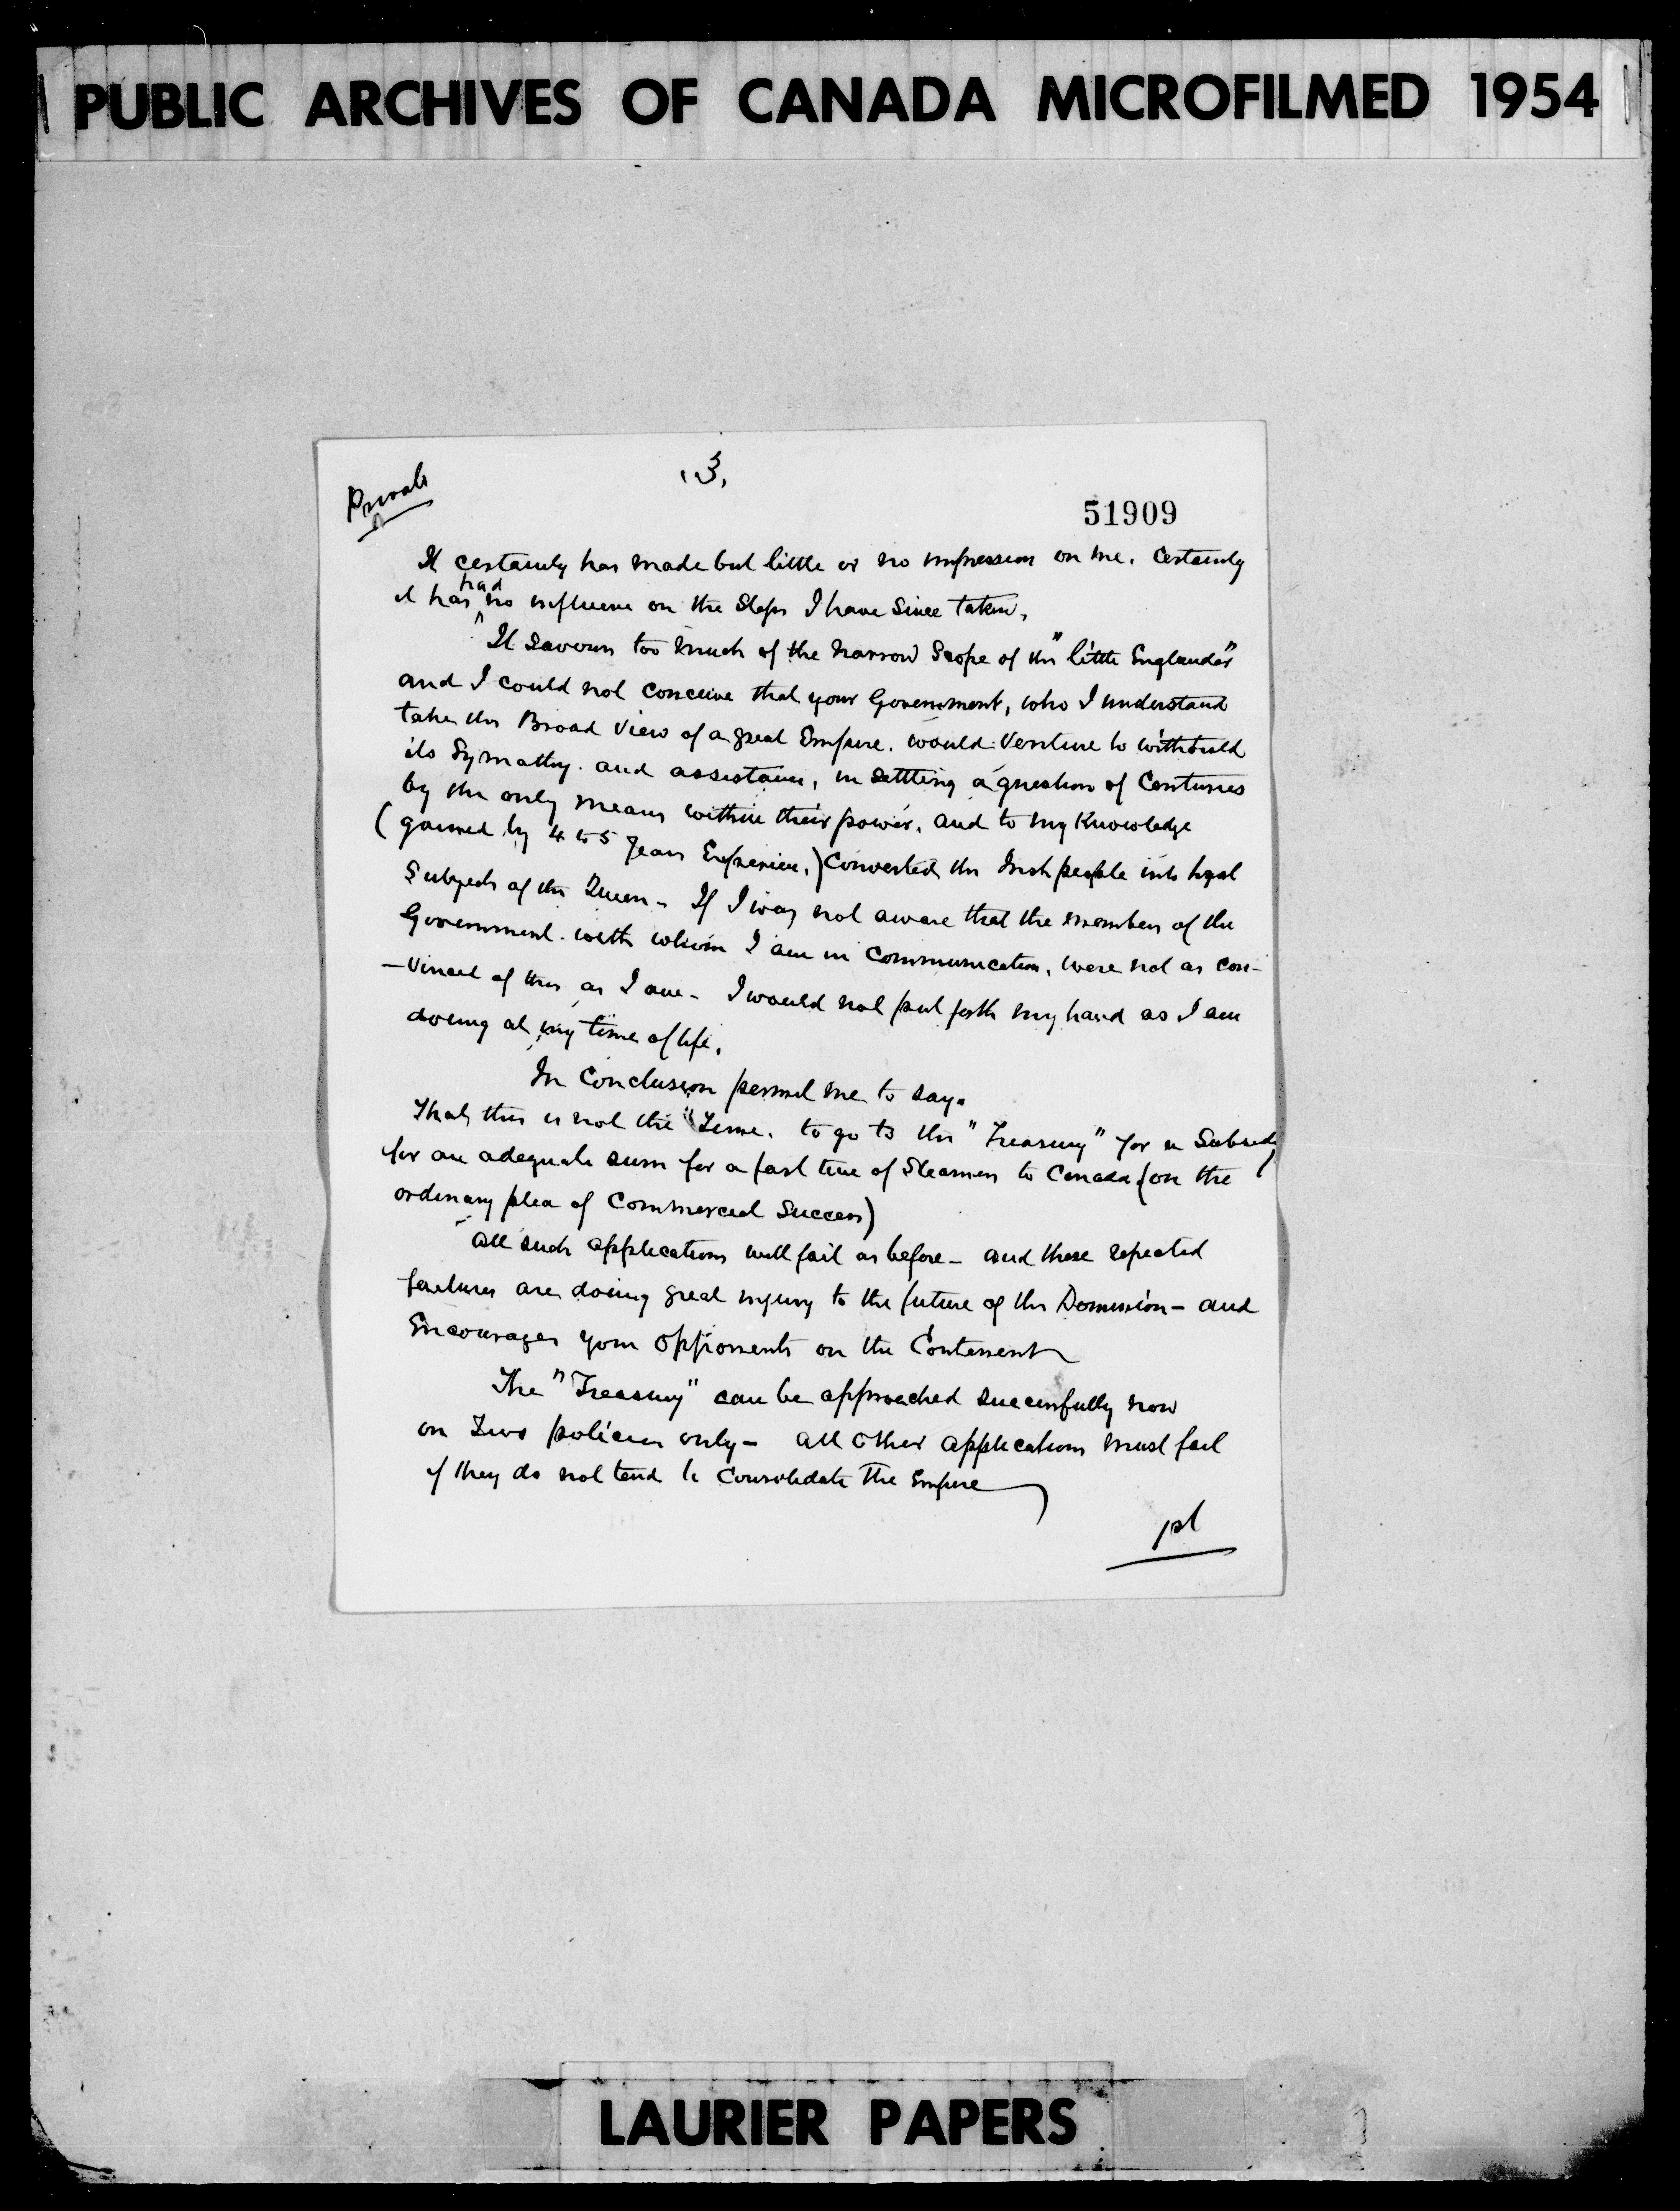 PUBLIC ARCHIVES OF CANADA MICROFILMED 1954
Private
3,
51909
It certainly has made but little or no impression on me. Certainly
had
it has no influence on the Steps I have Since taken,
It savours too much of the narrow Scope of the "little Englander"
and I could not conceive that your Government, who I understand
take the Broad View of a great Empire. would venture to withhold
its Symathy. and assistance, in settling a question of Centuries
by the only means within their power, and to my Knowledge
(gained by 4 to 5 Years Experience,) Converted the Irish people into loyal
Subjects of the Queen - If I was not aware that the members of the
Government. with whom I am in Communication, were not as con-
-vinced of this as I am - I would not put forth my hand as I am
doing at my time of life,
In Conclusion permit me to say.
That, this is not the "Time. to go to the "Treasury" for a Subsidy
for an adequate sum for a fast line of Steamers to Canada (on the
ordinary plea of Commercial Success)
All such applications will fail as before - and these repeated
failures are doing great injury to the future of the Dominion - and
Encourages your Opponents on the Continent
The "Treasury" can be approached successfully now
on Two policies only - all other applications must fail
if they do not tend to Consolidate the Empire
1st
LAURIER PAPERS